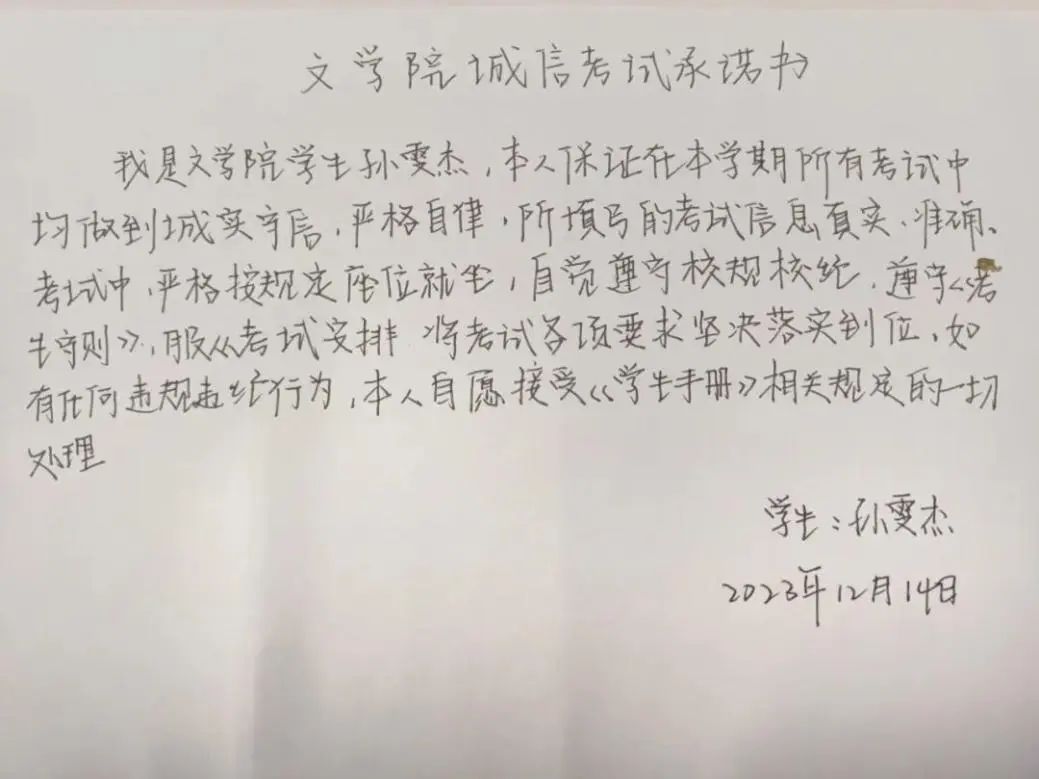 文学院诚信考试承诺书
我是文学院学生孙雯杰,本人保证在本学期所有考试中
均做到诚实守信,严格自律,所填写的考试信息真实、准确。
考试中,严格按规定座位就坐,自觉遵守校规校纪,遵守《考
生守则》,服从考试安排 将考试各项要求坚决落实到位,如
有任何违规违纪行为,本人自愿接受《学生手册》相关规定的一切
处理
学生:孙雯杰
2023年12月14日